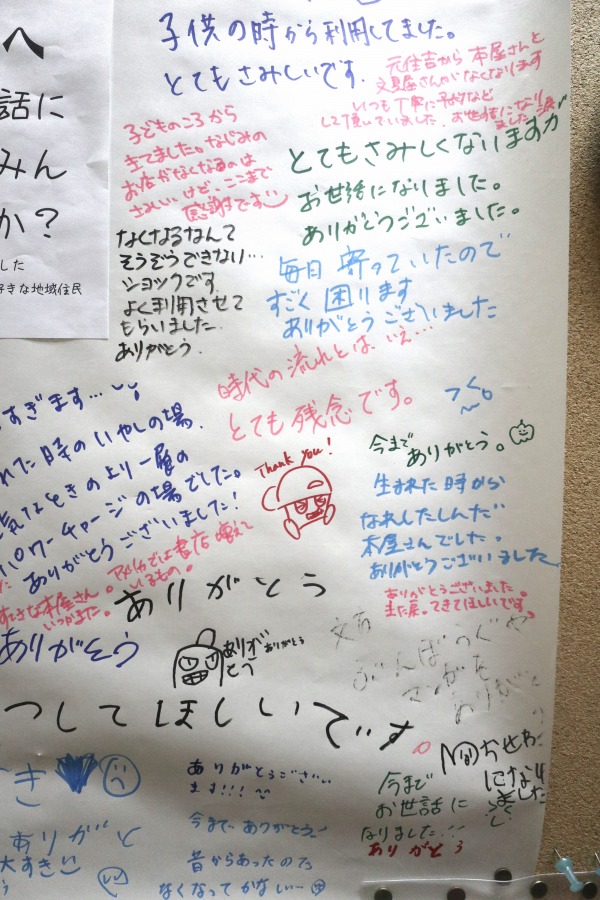 へ
話に
みん
か？
した
好きな地域住民
子供の時から利用してました。
とてもさみしいです。
元住吉から本屋さんと
文具屋さんがなくなります
いつも丁寧に予約など
して頂いていました。お世話になり
ました 涙
子どものころから
なじみの
お店がなくなるのは
さみしいけど、ここまで
感謝です
とてもさみしくなりますが
お世話になりました。
ありがとうございました。
なくなるなんて
そうぞうできない…
ショックです
よく利用させて
もらいました
ありがとう。
毎日 寄っていたので
すごく 困ります
ありがとうございました
時代の流れとは いえ…
とても 残念です。
すぎます…
れた時のいやしの場、
気なときのより一層の
パワーチャージの場でした。
ありがとうございました!
Thank You!
今まで
ありがとう。
生まれた時から
なれしたしんだ
本屋さんでした。
ありがとうございました
すきな本屋さん。
いつかまた。
ありがとうございました。
また戻ってきてほしいです。
ありがとう
ありがとう
ありが
とう
ありがとう
つしてほしいです
き
ありがと
大すき
ありがとうござい
ます!!!
今まで ありがとう
昔からあったので
なくなってかなしい…
今まで
お世話に
なりました!!
ありがとう
お世わ
になり
ました